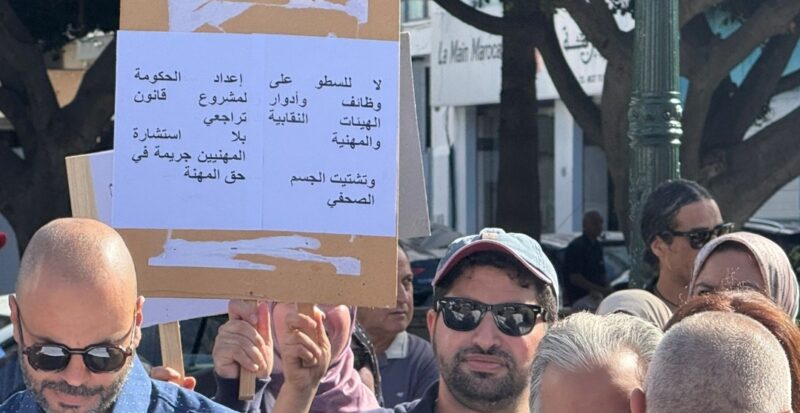 لا للسطو على
وظائف وأدوار
الهيئات النقابية
والمهنية
وتشتيت الجسم
الصحفي
إعداد الحكومة
لمشروع قانون
تراجعي
بلا استشارة
المهنيين جريمة في
حق المهنة
La Main Maroca